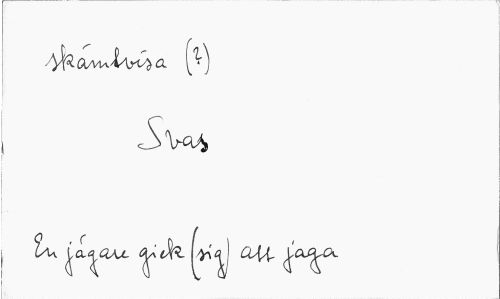 skämtvisa (?)
Svas
En jägare gick (sig) att jaga